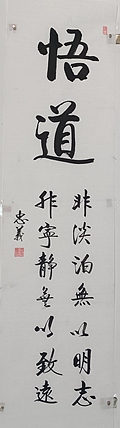 悟道
非淡泊無以明志
非寧靜無以致遠
忠義